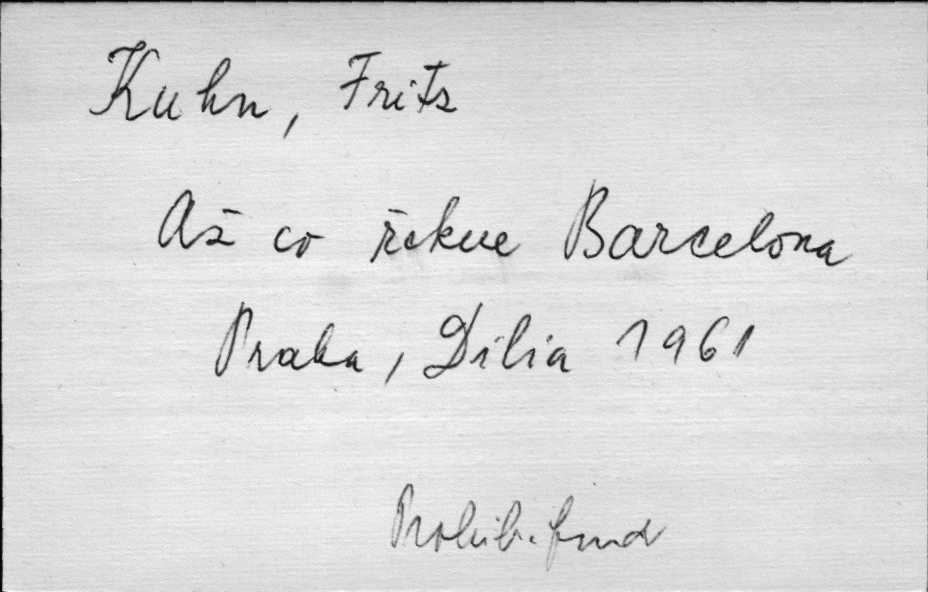 Kuhn, Fritz
Až co řekne Barcelona
Praha, Dilia 1961
Prohib. fond